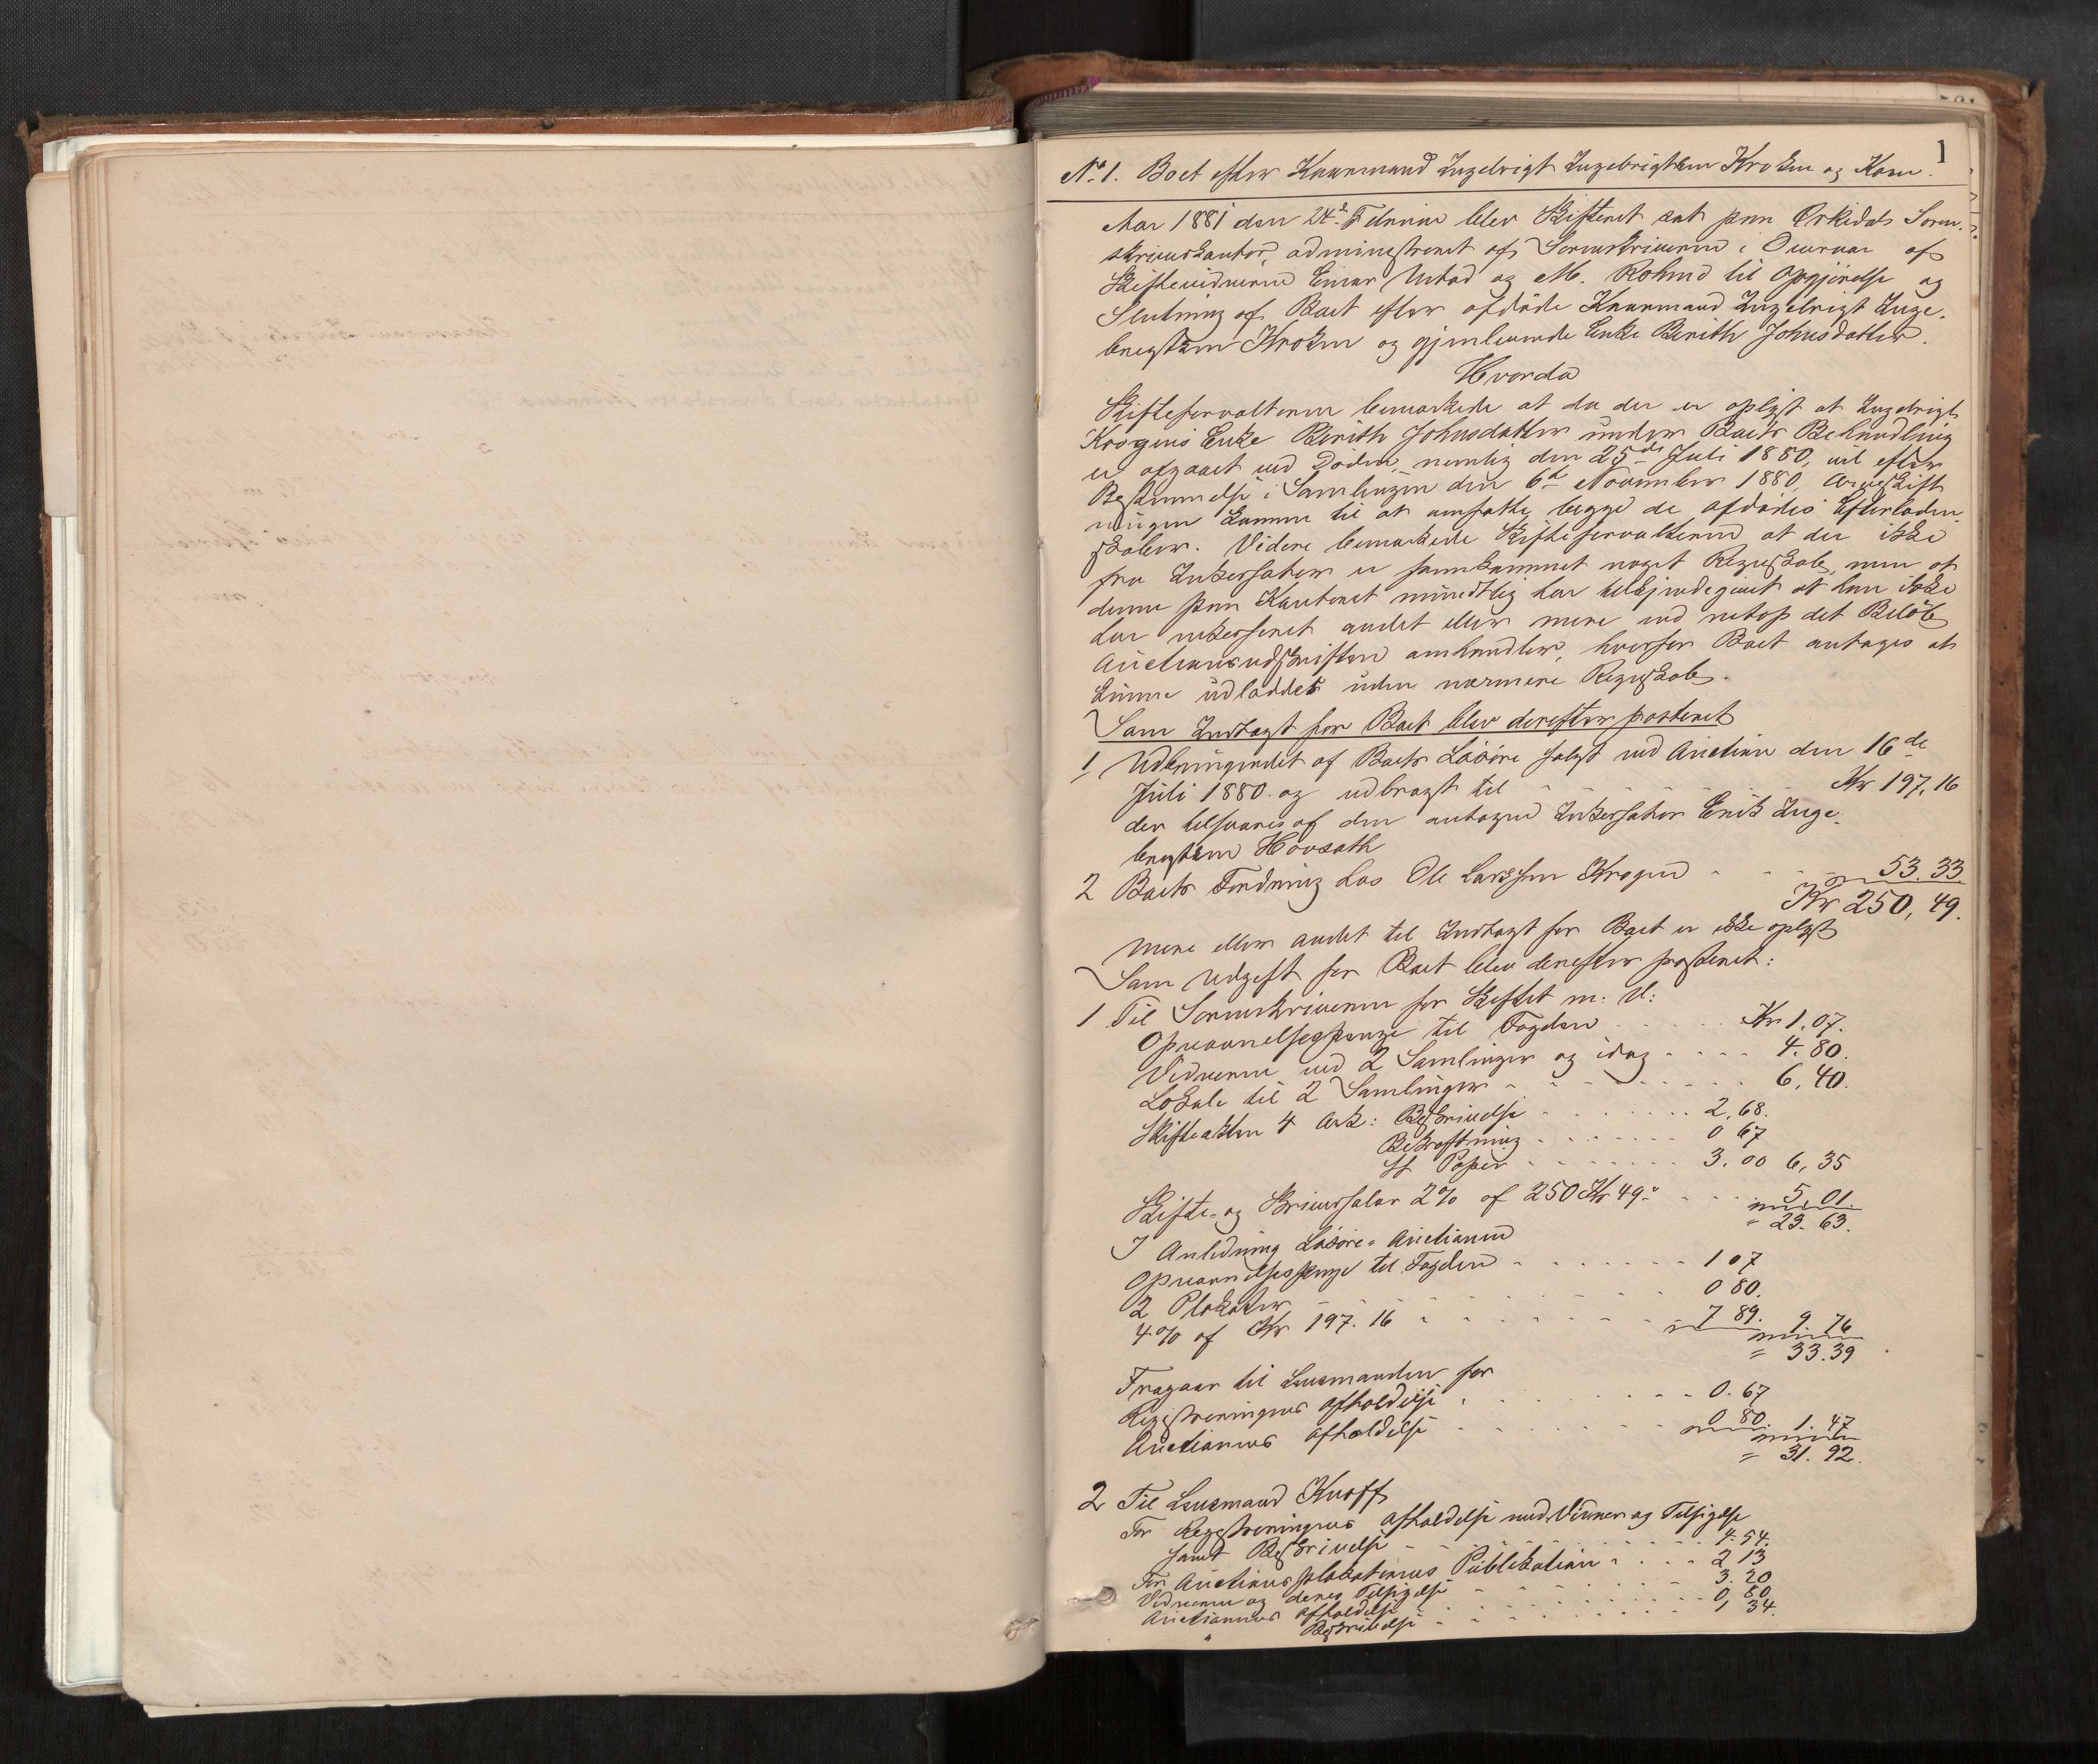 1
No 1. Boet efter Kaarmand Ingebrigt Ingebrigtsen Kroken og Kone.
Aar 1881 den 24de Februar blev Skifteret sat paa Orkedals Soren-
skriverkontor, administreret af Sorenskriveren i Overvær af
Skiftevidnerne Einar Ustad og M. Rohmd til Opgjørelse og
Slutning af Boet efter afdøde Kaarmand Ingebrigt Inge-
brigtsen Kroken og gjenlevende Enke Berith Johnsdatter.
Hvorda
Skifteforvalteren bemærkede at da det er oplyst at Ingebrigt
Krogens Enke Berith Johnsdatter under Boets Behandling
er afgaaet ved Døden, nemlig den 25de Juli 1880, vil efter
Bestemmelse i Samlingen den 6te November 1880, Arveskift
ningen komme til at omfatte begge de afdødes Efterladen
skaber. Videre bemærkede Skifteforvalteren at der ikke
fra Inkassator er fremkommet noget Regnskab, men at
denne paa Kontoret mundtlig har tilkjendegivet at han ikke
har inkasseret andet eller mere end netop det Beløb
Auctionsudskriften omhandler, hvorfor Boet antages at
kunne udloddes uden nærmere Regnskab.
Som Indtægt for Boet blev derefter posteret
1, Udbringendet af Boets Løsøre solgt ved Auction den 16de
Juli 1880 og udbragt til - - - - - - Kr 197,16
der tilsvares af den antagne Inkassator Erik Inge-
brigtsen Hovsath
2 Boets Fordring hos Ole Larssen Krogen - - - 53.33
Kr 250,49.
Mere eller andet til Indtægt for Boet er ikke oplyst
Som Udgift for Boet blev derefter posteret:
1 Til Sorenskriveren for Skiftet m. V:
Opnævnelsespenge til Fogden - - - - - Kr 1.07.
Vidnerne ved 2 Samlinger og idag - - - - 4.80.
Lokale til 2 Samlinger - - - - - - - 6,40.
Skifteakten 4 Ark: Beskrivelse - - - - - - 2,68.
Bekræftning - - - - - - 0 67
St Papir - - - - - - 3.00 6,35
Skifte- og Skriversalær 2% af 250 Kr 49 - - - 5,01.
= 23.63.
I Anledning Løsøre-Auctionen
Opnævnelsespenge til Fogden - - - - - - 1 07
2 Plakater - - - - - - - - 0 80.
4% af Kr 197.16 - - - - - - - 7 89. 9 76
= 33.39
Fragaar til Lensmanden for
Registreringens Afholdelse - - - - - - 0.67
Auctionens Afholdelse - - - - - - 0 80. 1.47
= 31.92.
2 Til Lensmand Knoff
For Registreringens Afholdelse med Vidner og Tilsigelse
samt Beskrivelse - - - - - - - - - 4.54.
For Auctionsplakaternes Publikation - - - - 2 13
Vidnerne og deres Tilsigelse - - - - - - 3.20
Auctionens Afholdelse - - - - - - - - 0,80
" Beskrivelse - - - - - - - - 1 34.